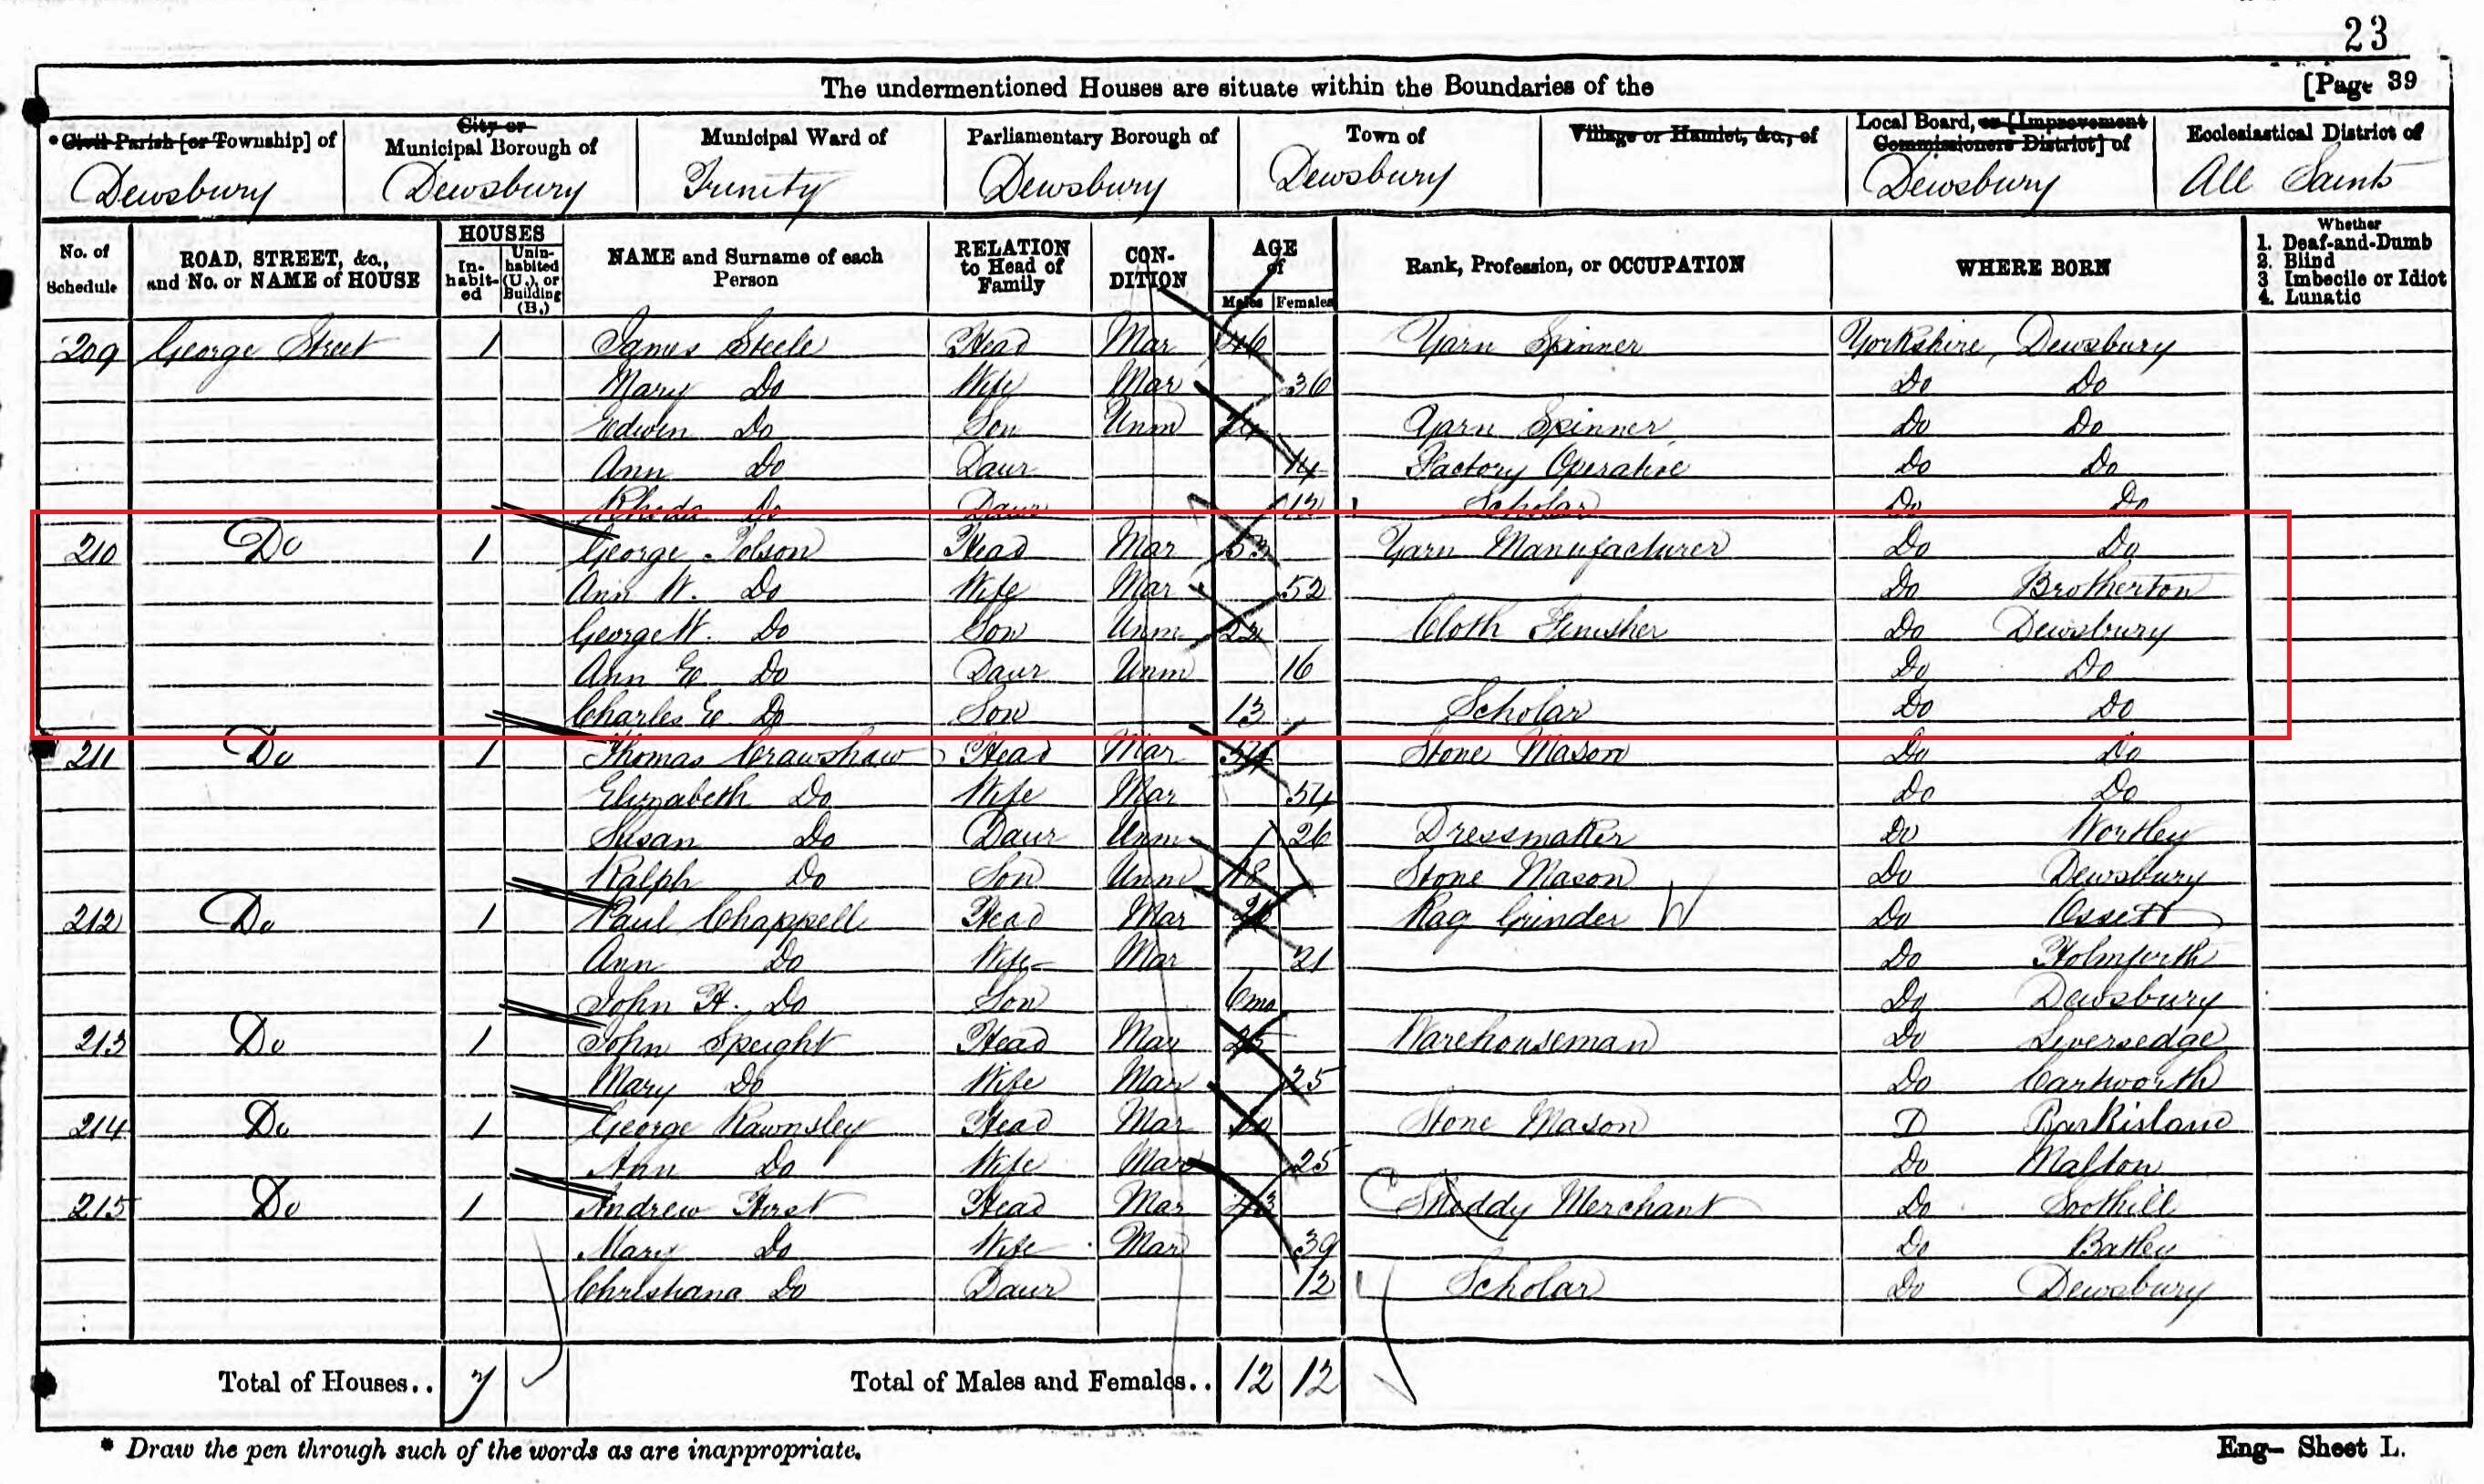 23
The undermentioned Houses are situate within the Boundaries of the [Page 39
*Civil Parish [or Township] of City or Municipal Borough of Municipal Ward of Parliamentary Borough of Town of Village or Hamlet, &c., of Local Board, or [Improvement Commissioners District] of Ecclesiastical District of
Dewsbury Dewsbury Trinity Dewsbury Dewsbury Dewsbury All Saints
No. of Schedule ROAD, STREET, &c., and No. or NAME of HOUSE HOUSES Inhabited Uninhabited (U.), or Building (B.) NAME and Surname of each Person RELATION to Head of Family CONDITION AGE of Males Females Rank, Profession, or OCCUPATION WHERE BORN Whether 1. Deaf-and-Dumb 2. Blind 3 Imbecile or Idiot 4. Lunatic
209 George Street 1 James Steele Head Mar 46 Yarn Spinner Yorkshire, Dewsbury
Mary Do Wife Mar 36 Do Do
Edwin Do Son Unm Yarn Spinner Do Do
Ann Do Daur 14 Factory Operative Do Do
Rhoda Do Daur 12 Scholar Do Do
210 Do 1 George Tolson Head Mar 53 Yarn Manufacturer Do Do
Ann W. Do Wife Mar 52 Do Brotherton
George W. Do Son Unm Cloth Finisher Do Dewsbury
Ann E Do Daur Unm 16 Do Do
Charles E Do Son 13 Scholar Do Do
211 Do 1 Thomas Crawshaw Head Mar 54 Stone Mason Do Do
Elizabeth Do Wife Mar 54 Do Do
Susan Do Daur Unm 26 Dressmaker Do Wortley
Ralph Do Son Unm 18 Stone Mason Do Dewsbury
212 Do 1 Paul Chappell Head Mar Rag Grinder W Do Ossett
Ann Do Wife Mar 21 Do Holmfirth
John H. Do Son 6mo Do Dewsbury
213 Do 1 John Speight Head Mar 25 Warehouseman Do Liversedge
Mary Do Wife Mar 25 Do Cartworth
214 Do 1 George Rawnsley Head Mar Stone Mason D Barkisland
Ann Do Wife Mar 25 Do Malton
215 Do 1 Andrew Hirst Head Mar 43 Shoddy Merchant Do Soothill
Mary Do Wife Mar 39 Do Batley
Christiana Do Daur 12 Scholar Do Dewsbury
Total of Houses.. 7 Total of Males and Females.. 12 12
* Draw the pen through such of the words as are inappropriate.
Eng- Sheet L.